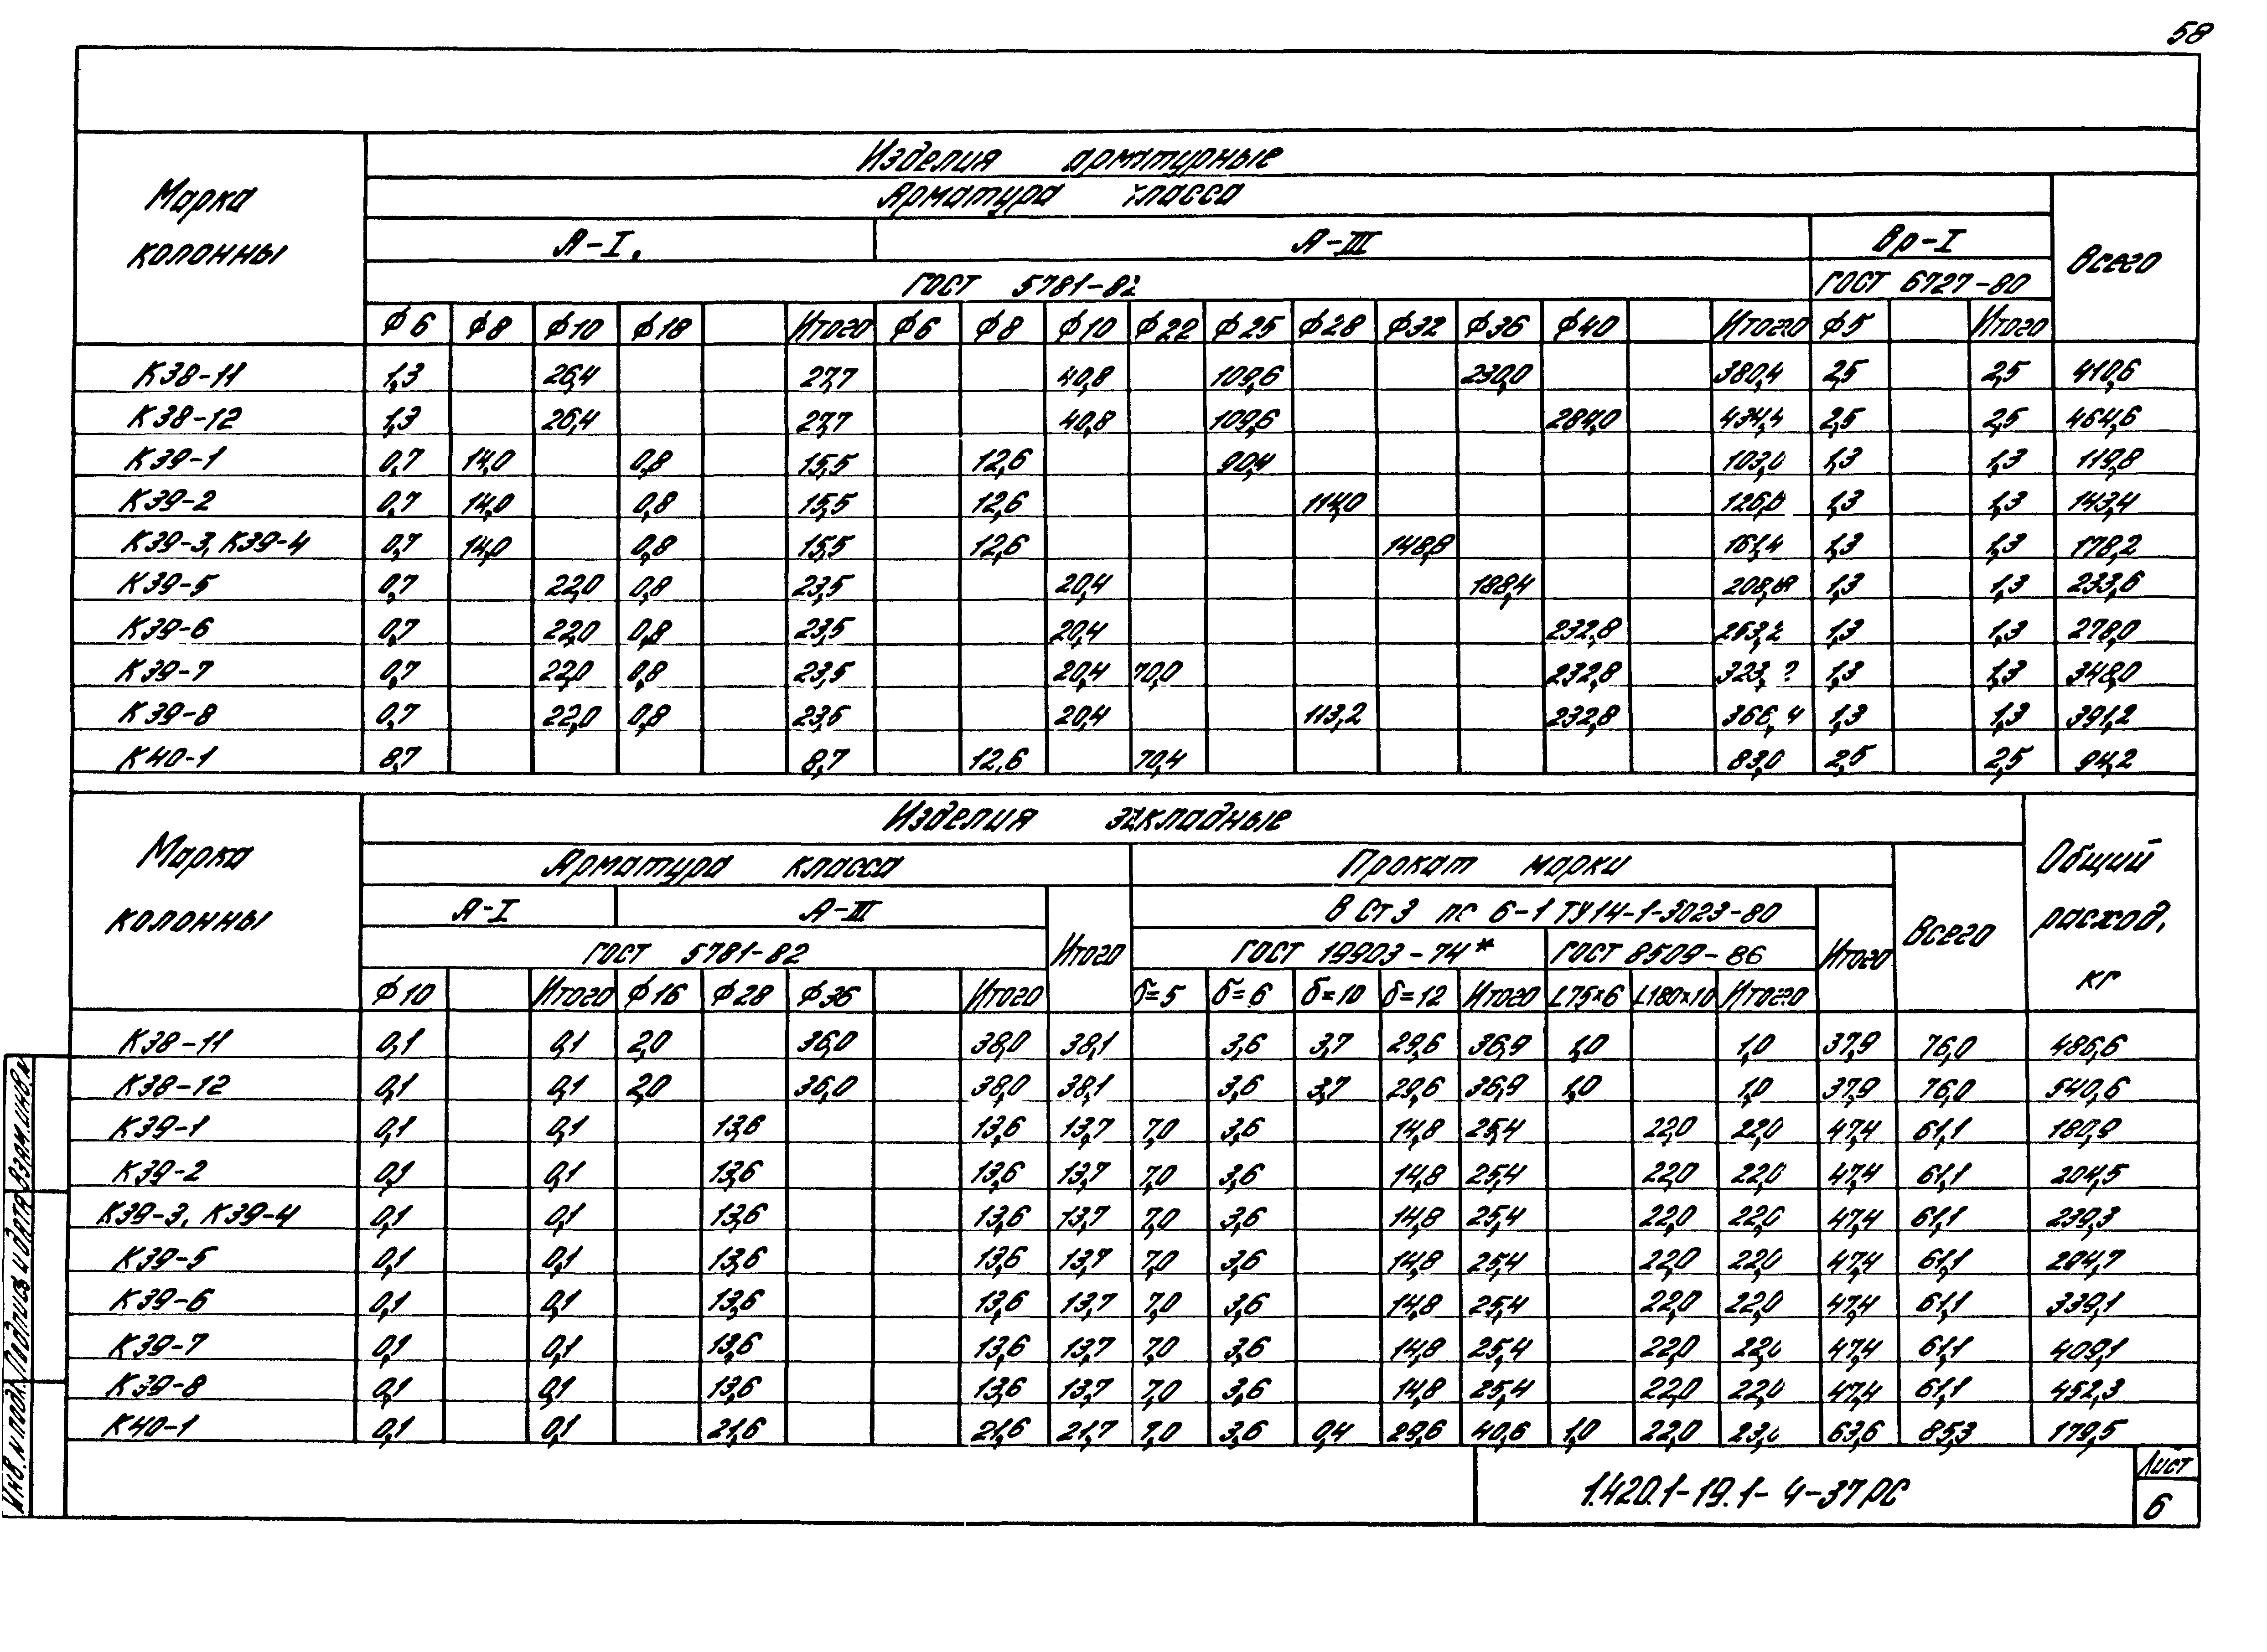 58
Изделия арматурные
Марка колонны
Арматура класса
Всего
А-I. А-III Вр-I
ГОСТ 5781-82 ГОСТ 6727-80
φ6 φ8 φ10 φ18 Итого φ6 φ8 φ10 φ22 φ25 φ28 φ32 φ36 φ40 Итого φ5 Итого
К38-11 1,3 26,4 27,7 40,8 109,6 230,0 380,4 2,5 2,5 410,6
К38-12 1,3 26,4 27,7 40,8 109,6 284,0 434,4 2,5 2,5 464,6
К39-1 0,7 14,0 0,8 15,5 12,6 90,4 103,0 1,3 1,3 119,8
К39-2 0,7 14,0 0,8 15,5 12,6 114,0 126,6 1,3 1,3 143,4
К39-3, К39-4 0,7 14,0 0,8 15,5 12,6 148,8 161,4 1,3 1,3 178,2
К39-5 0,7 22,0 0,8 23,5 20,4 188,4 208,8 1,3 1,3 233,6
К39-6 0,7 22,0 0,8 23,5 20,4 232,8 253,2 1,3 1,3 278,0
К39-7 0,7 22,0 0,8 23,5 20,4 70,0 232,8 1,3 1,3 348,0
К39-8 0,7 22,0 0,8 23,5 20,4 113,2 232,8 366,4 1,3 1,3 391,2
К40-1 8,7 8,7 12,6 70,4 83,0 2,5 2,5 94,2
Изделия закладные
Марка колонны
Арматура класса Прокат марки
Всего
Общий расход, кг
А-I А-III Итого В Ст3 пс 6-1 ТУ14-1-3023-80 Итого
ГОСТ 5781-82 ГОСТ 19903-74* ГОСТ 8509-86
φ10 Итого φ16 φ28 φ36 Итого δ=5 δ=6 δ=10 δ=12 Итого L75×6 L180×10 Итого
К38-11 0,1 0,1 2,0 36,0 38,0 38,1 3,6 3,7 29,6 36,9 1,0 1,0 37,9 76,0 486,6
К38-12 0,1 0,1 2,0 36,0 38,0 38,1 3,6 3,7 29,6 36,9 1,0 1,0 37,9 76,0 540,6
К39-1 0,1 0,1 13,6 13,6 13,7 7,0 3,6 14,8 25,4 22,0 22,0 47,4 61,1 180,9
К39-2 0,1 0,1 13,6 13,6 13,7 7,0 3,6 14,8 25,4 22,0 22,0 47,4 61,1 204,5
К39-3, К39-4 0,1 0,1 13,6 13,6 13,7 7,0 3,6 14,8 25,4 22,0 22,0 47,4 61,1 239,3
К39-5 0,1 0,1 13,6 13,6 13,7 7,0 3,6 14,8 25,4 22,0 22,0 47,4 61,1 294,7
К39-6 0,1 0,1 13,6 13,6 13,7 7,0 3,6 14,8 25,4 22,0 22,0 47,4 61,1 339,1
К39-7 0,1 0,1 13,6 13,6 13,7 7,0 3,6 14,8 25,4 22,0 22,0 47,4 61,1 409,1
К39-8 0,1 0,1 13,6 13,6 13,7 7,0 3,6 14,8 25,4 22,0 22,0 47,4 61,1 452,3
К40-1 0,1 0,1 21,6 21,6 21,7 7,0 3,6 0,4 29,6 40,6 1,0 22,0 23,0 63,6 85,3 179,5
Инв. N подл. Подпись и дата Взам. инв. N
1.420.1-19.1-4-37РС
Лист
6